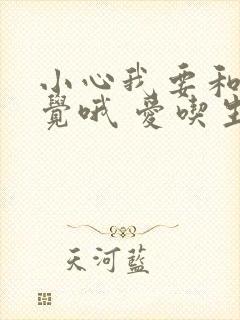 小心我要和
覺哦 愛喫生
天河藍